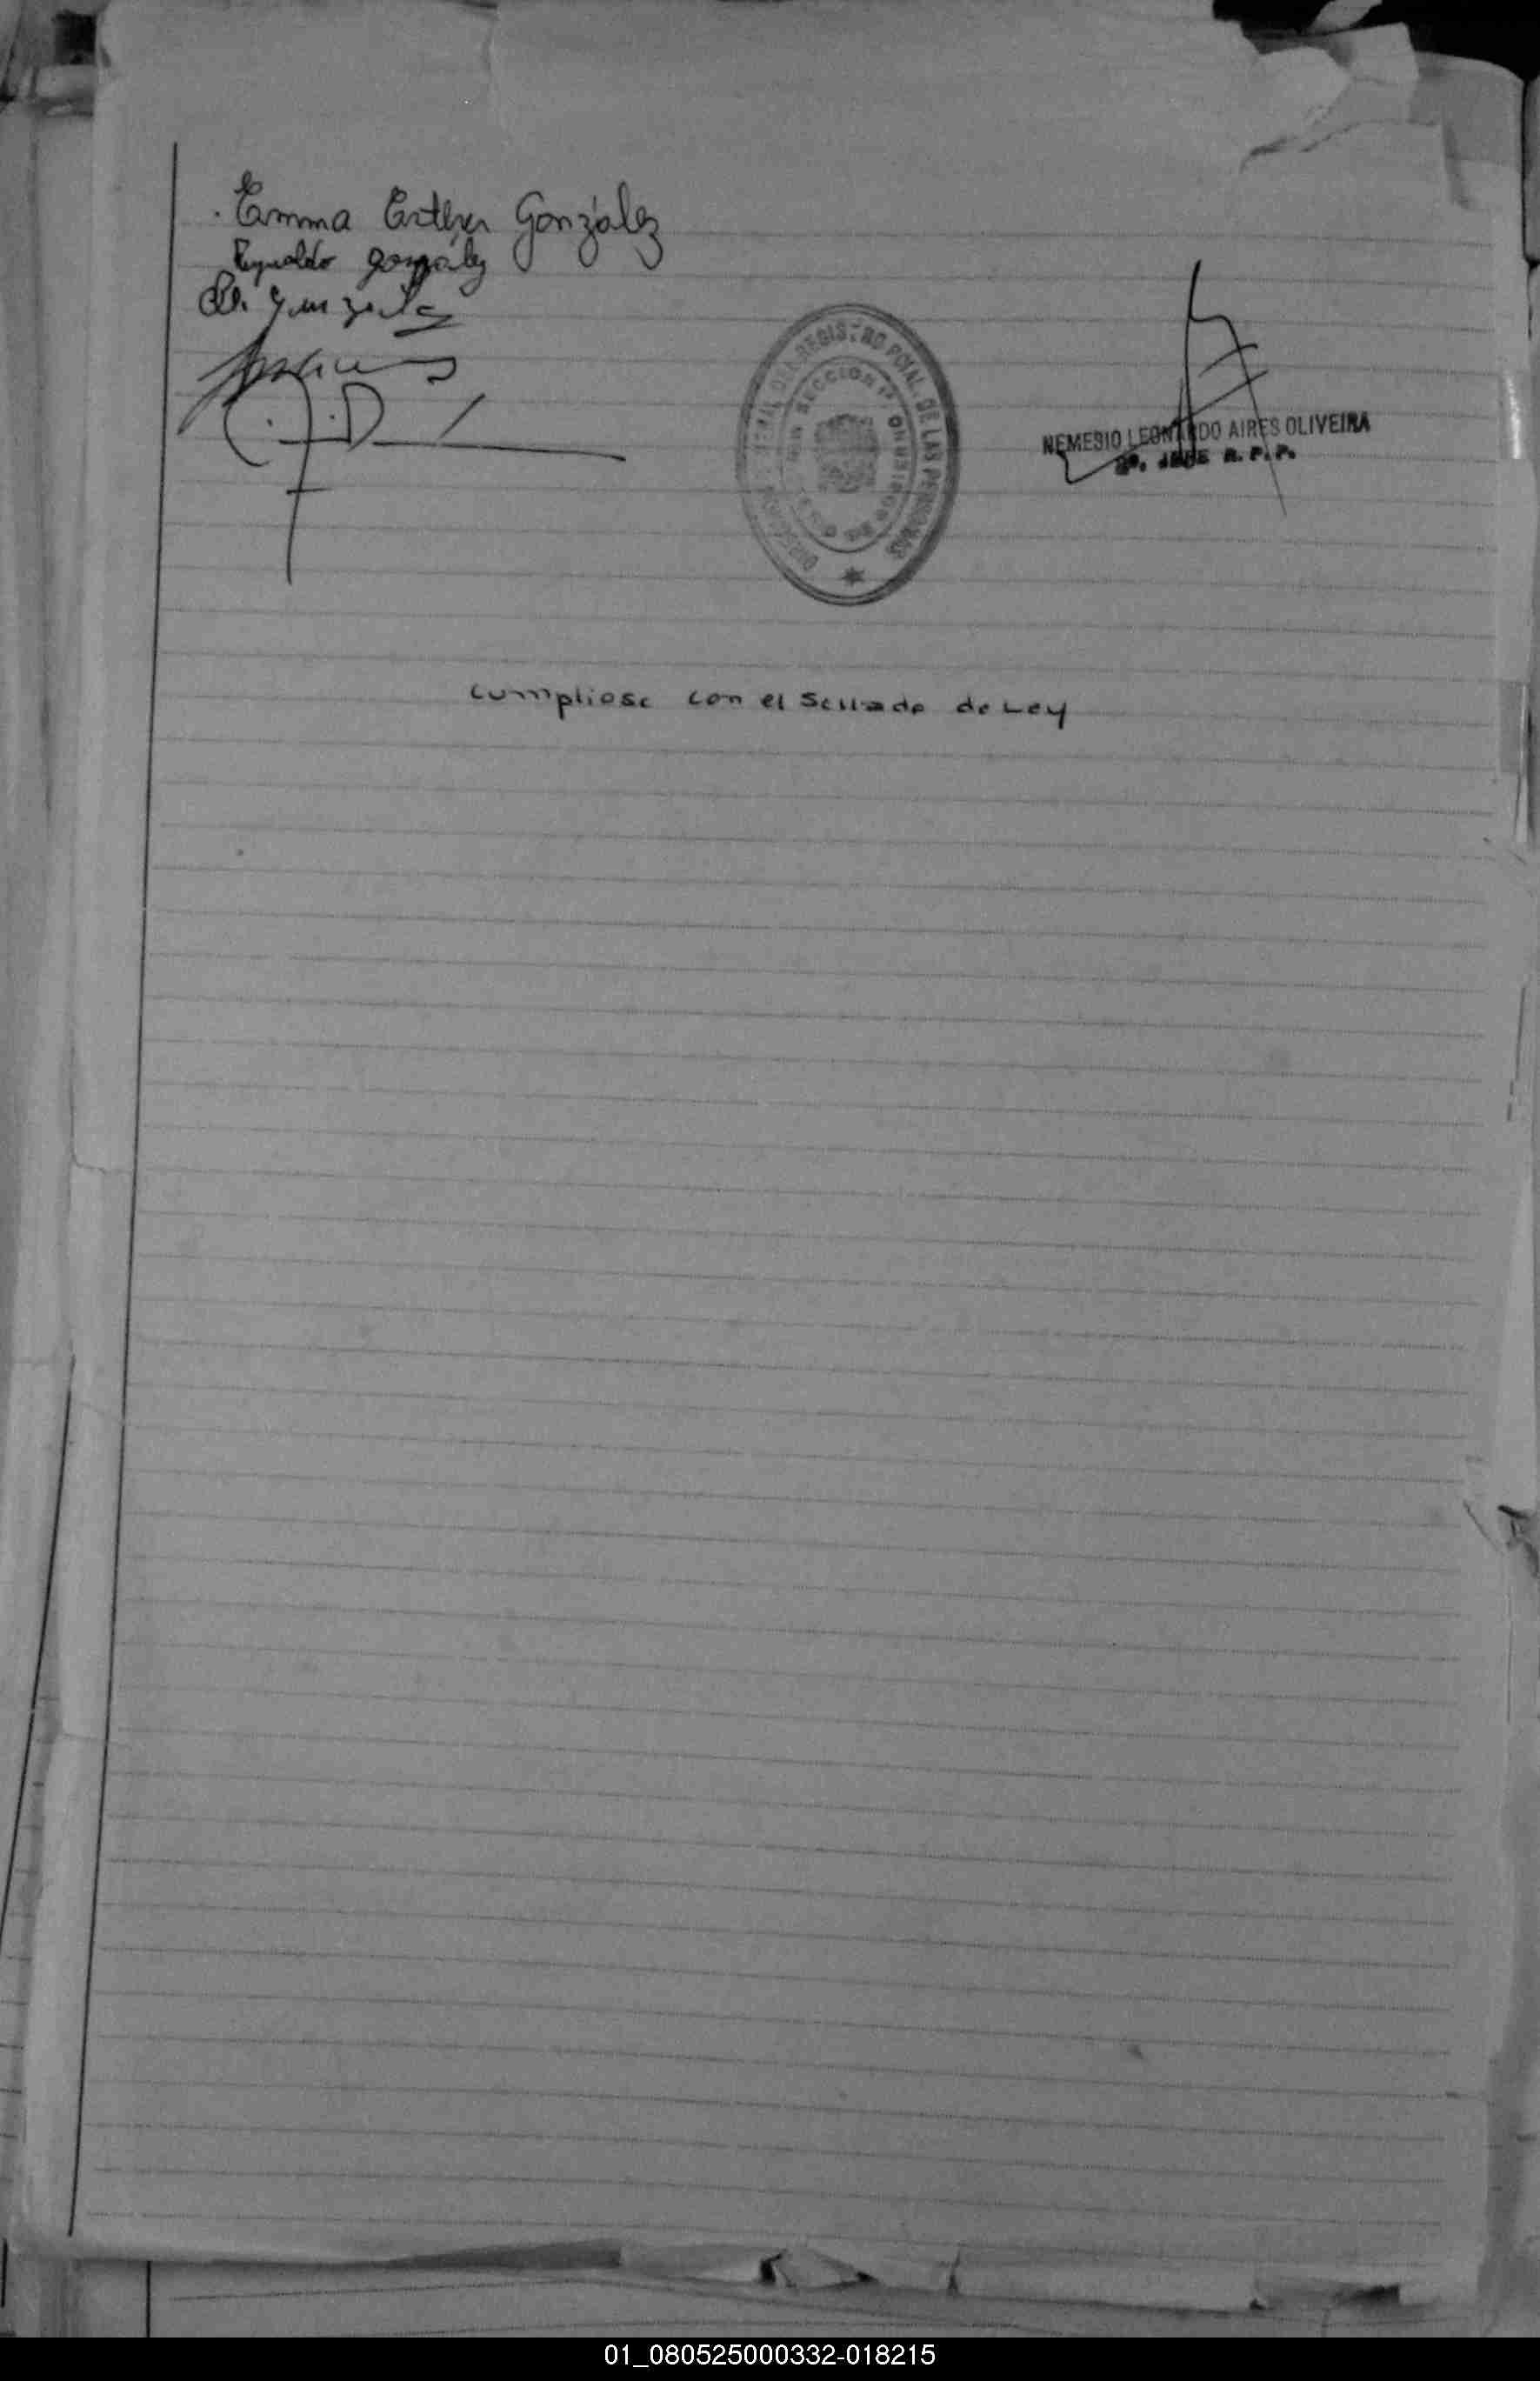 Emma Esther González
Reynaldo González
González
DIRECCION GENERAL DEL REGISTRO PCIAL. DE LAS PERSONAS
SECCION 1ª
NEMESIO LEONARDO AIRES OLIVEIRA
2º. JEFE R. P. P.
Cumpliose con el Sellado de Ley
01_080525000332-018215